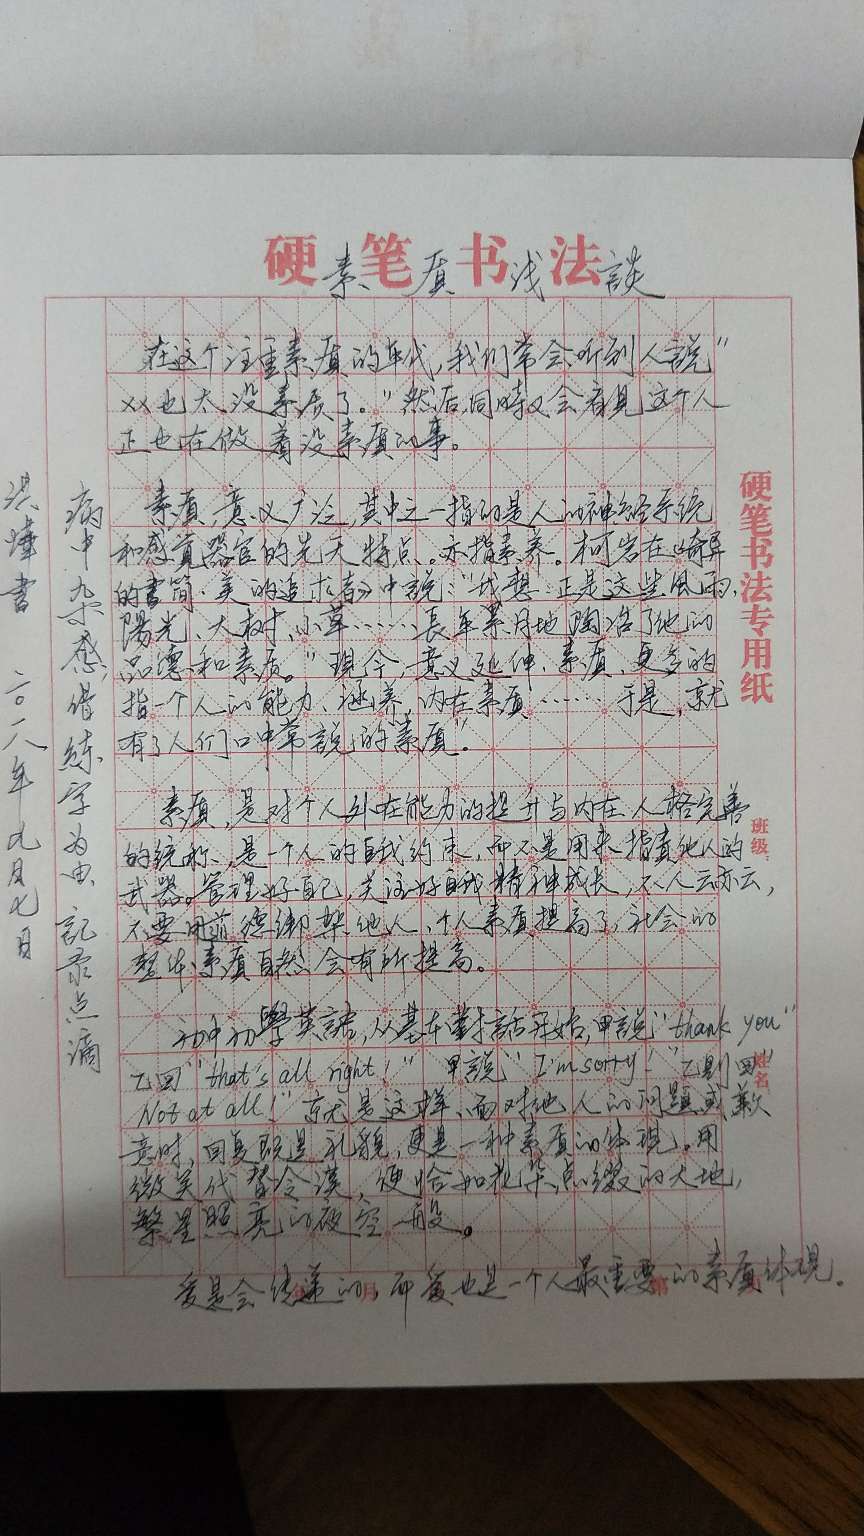 硬笔书法
素质浅談
在这个注重素质的年代，我们常会听到人說"
xx也太没素质了。"然后同時又会看見这个人
正也在做着没素质的事。
素质，意义广泛，其中之一指的是人的神经系统
和感覚器官的先天特点。亦指素养。柯岩在《奇异
的書简·美的追求者》中說："我想：正是这些風雨、
陽光、大树、小草……長年累月地陶冶了他的
品德和素质。"現今，意义延伸、素质，更多的
指一个人的能力、涵养、内在素质……于是，就
有了人们口中常說的"素质"。
素质，是对个人外在能力的提升与内在人格完善
的统称，是一个人的自我约束，而不是用来指責他人的
武器。管理好自己，关注好自我精神成长，不人云亦云，
不要用道德绑架他人，个人素质提高了，社会的
整体素质自然会有所提高。
初中初學英語，从基本對話开始，甲說"thank you"
乙回"that's all right!" 甲說"I'm sorry!"乙則回"
Not at all!"就是这样、面对他人的问题或歉
意时，回复既是礼貌，更是一种素质的体現。用
微笑代替冷漠，便恰如花朵点缀的大地，
繁星照亮的夜空一般。
爱是会传递的，而爱也是一个人最重要的素质体現。
病中杂感，借练字为由，記录点滴
書 二〇一八年九月七日
硬笔书法专用纸
班级：
姓名
年
月
第